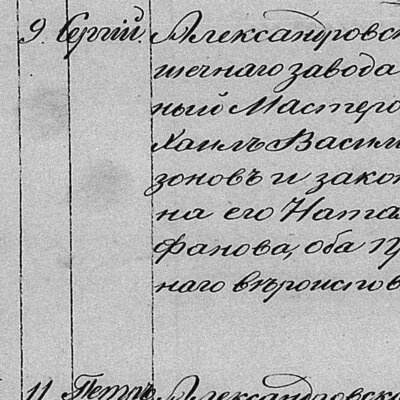 9. Сергій. Александровск
шечнаго завода
ный Мастеро
хаилъ Васил
зоновъ и закон
на его Ната
фанова, оба пр
наго вѣроиспов
11 Петръ Александровска